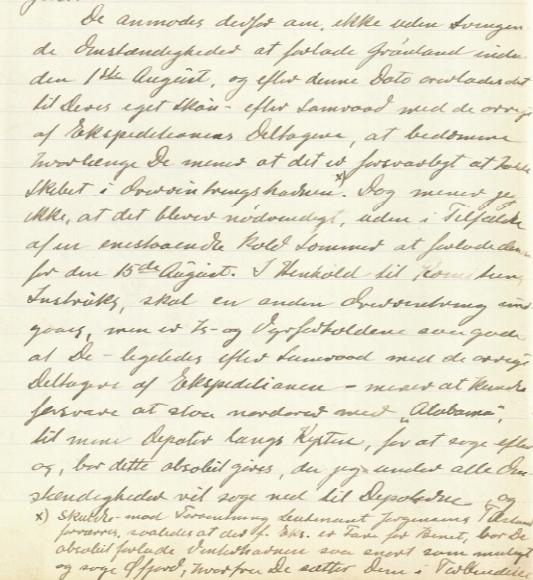 De anmodes derfor om, ikke uden tvingen-
de Omstændigheder at forlade Grønland inden
den 1ste August, og efter denne Dato overlades det
til Deres eget Skøn - efter Samraad med de øvrige
af Ekspeditionens Deltagere, at bedømme
hvorlænge De mener at det er forsvarligt at holde
Skibet i Overvintringshavnen x). Dog mener jeg
ikke, at det bliver nødvendigt, uden i Tilfælde
af en enestaaende kold Sommer at forlade den
før den 15de August. I Henhold til Komiteens
Instruks, skal en anden Overvintring und-
gaaes, men er Is- og Vejrforholdene saa gode
at De - ligeledes efter Samraad med de øvrige
Deltagere af Ekspeditionen - mener at kunne
forsvare at staa nordover med "Alabama",
til mine Depoter langs Kysten, for at søge efter
os, bør dette absolut gøres, da jeg under alle Om-
stændigheder vil søge ned til Depoterne og
x) Skulde mod Forventning Løitnant Jørgensens Tilstand
forværres, saaledes at der f. Eks. er Fare for Benet, bør De
absolut forlade Vinterhavnen saa snart som muligt
og søge Øfjord, hvorfra De sætter Dem i Forbindelse